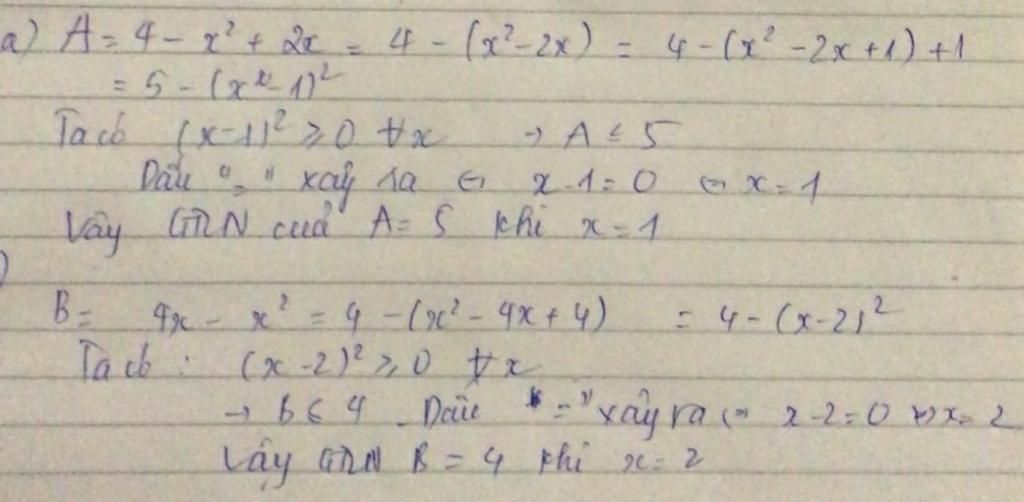 a) A = 4 - x² + 2x = 4 - (x² - 2x) = 4 - (x² - 2x + 1) + 1
= 5 - (x - 1)²
Ta có (x-1)² ≥ 0 ∀x → A ≤ 5
Dấu "=" xảy ra ⇔ x - 1 = 0 ⇔ x = 1
Vậy GTLN của A = 5 khi x = 1
)
B = 4x - x² = 4 - (x² - 4x + 4) = 4 - (x-2)²
Ta có : (x - 2)² ≥ 0 ∀x
→ B ≤ 4 Dấu "=" xảy ra ⇔ x - 2 = 0 ⇔ x = 2
Vậy GTLN B = 4 khi x = 2